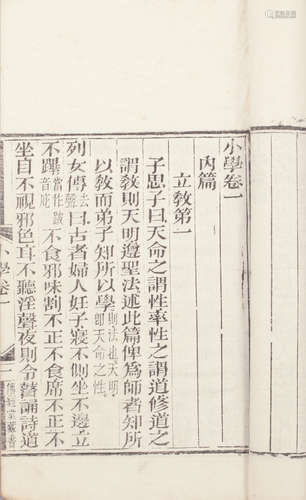 小學卷一
內篇
立教第一
子思子曰天命之謂性率性之謂道修道之
謂教則天明遵聖法述此篇俾為師者知所
以教而弟子知所以學則法也天明即天命之性
列女傳曰古者婦人妊子寢不側坐不邊立
不蹕不食邪味割不正不食席不正不
坐目不視邪色耳不聽淫聲夜則令瞽誦詩道
小學卷一